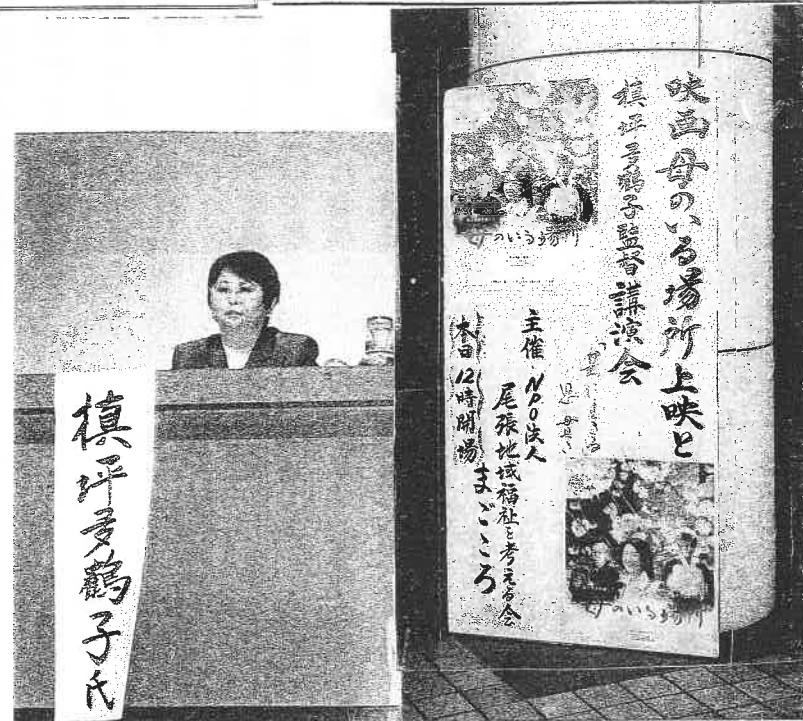 槙坪夛鶴子氏
映画母のいる場所上映と
槙坪夛鶴子監督講演会
主催 NPO法人
尾張地域福祉を考える会
まごころ
本日12時開場
母のいる場所
母のいる場所